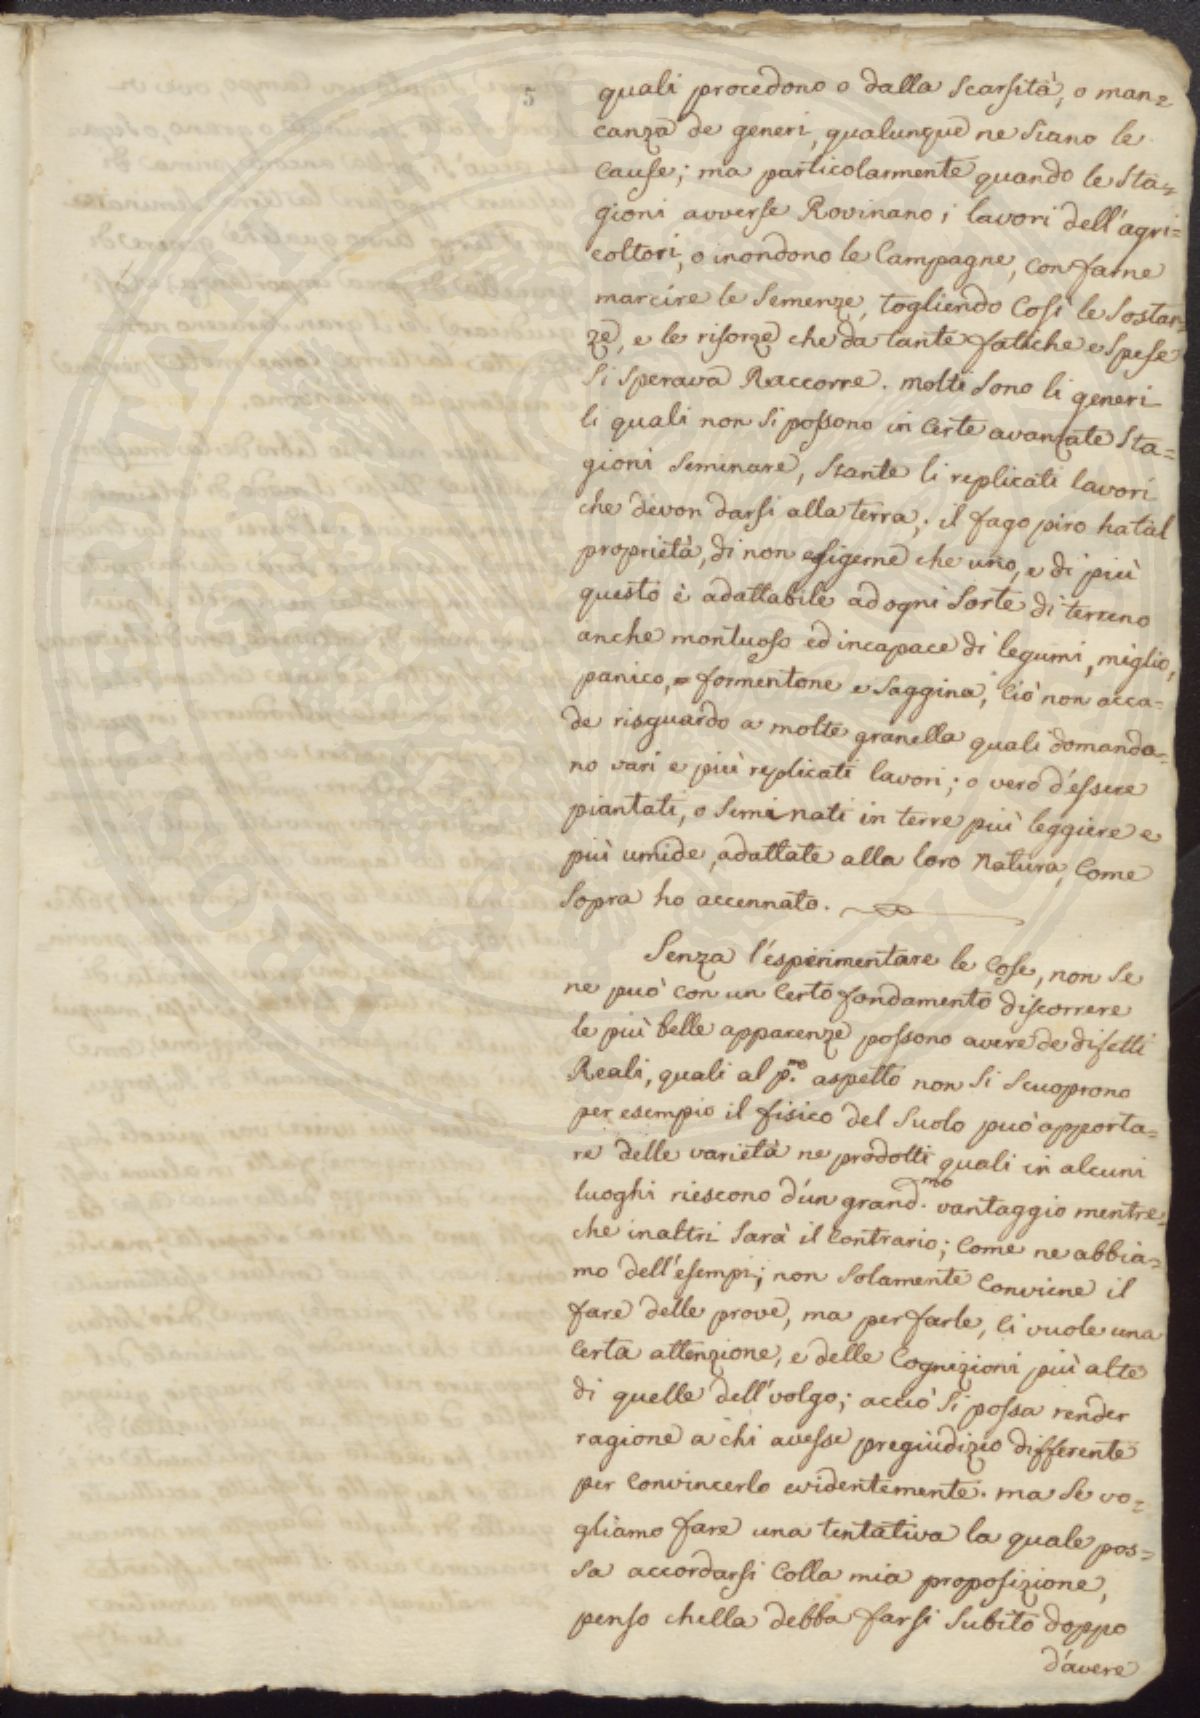 5
quali procedono o dalla scarsità, o man=
canza de generi, qualunque ne siano le
cause; ma particolarmente quando le sta=
gioni avverse Rovinano i lavori dell'agri=
coltori, o inondono le Campagne, con farne
marcire le semenze, togliendo così le sostan=
ze, e le risorze che da tante fatiche e spese
si sperava Raccorre. molti sono li generi
li quali non si possono in certe avanzate sta=
gioni seminare, stante li replicati lavori
che devon darsi alla terra; il fago piro ha tal
proprietà, di non esigerne che uno, e di più
questo è adattabile ad ogni sorte di terreno
anche montuoso ed incapace di legumi, miglio,
panico, formentone e saggina; ciò non acca=
de risguardo a molte granella quali domanda=
no vari e più replicati lavori; o vero d'essere
piantati, o seminati in terre più leggiere e
più umide, adattate alla loro Natura, come
sopra ho accennato.
Senza l'esperimentare le cose, non se
ne può con un certo fondamento discorrere
le più belle apparenze possono avere de difetti
Reali, quali al p.mo aspetto non si scuoprono
per esempio il fisico del suolo può apporta=
re delle varietà ne prodotti quali in alcuni
luoghi riescono d'un grand.mo vantaggio mentre
che in altri sarà il contrario; come ne abbia=
mo dell'esempi; non solamente conviene il
fare delle prove, ma per farle, ci vuole una
certa attenzione, e delle cognizioni più alte
di quelle dell'volgo; acciò si possa render
ragione a chi avesse pregiudizio differente
per convincerlo evidentemente. ma se vo=
gliamo fare una tentativa la quale pos=
sa accordarsi colla mia proposizione,
penso chella debba farsi subito doppo
d'avere